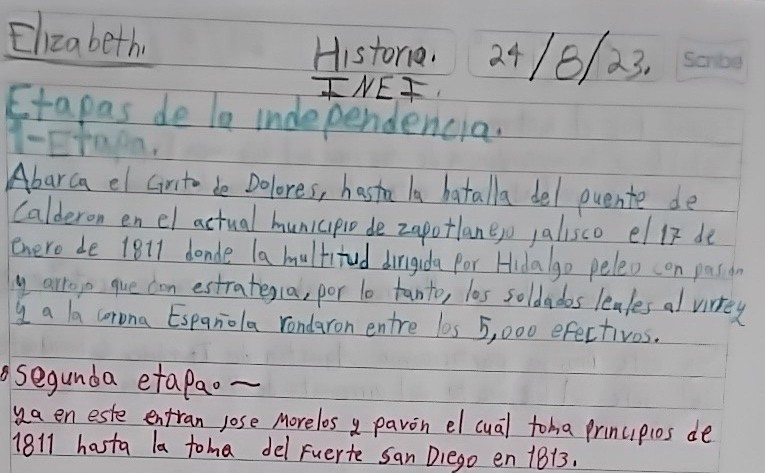 Elizabeth.
Historia. 24/8/23. Scribe
INEI.
Etapas de la independencia.
1-Etapa.
Abarca el Grito de Dolores, hasta la batalla del puente de
Calderon en el actual municipio de zapotlanejo jalisco el 17 de
enero de 1811 donde la multitud dirigida por Hidalgo peleo con pasion
y arrojo que con estrategia, por lo tanto, los soldados leales al virrey
y a la corona Española rondaron entre los 5,000 efectivos.
segunda etapa.~
ya en este entran jose Morelos y pavón el cuál toma principios de
1811 hasta la toma del Fuerte San Diego en 1813.